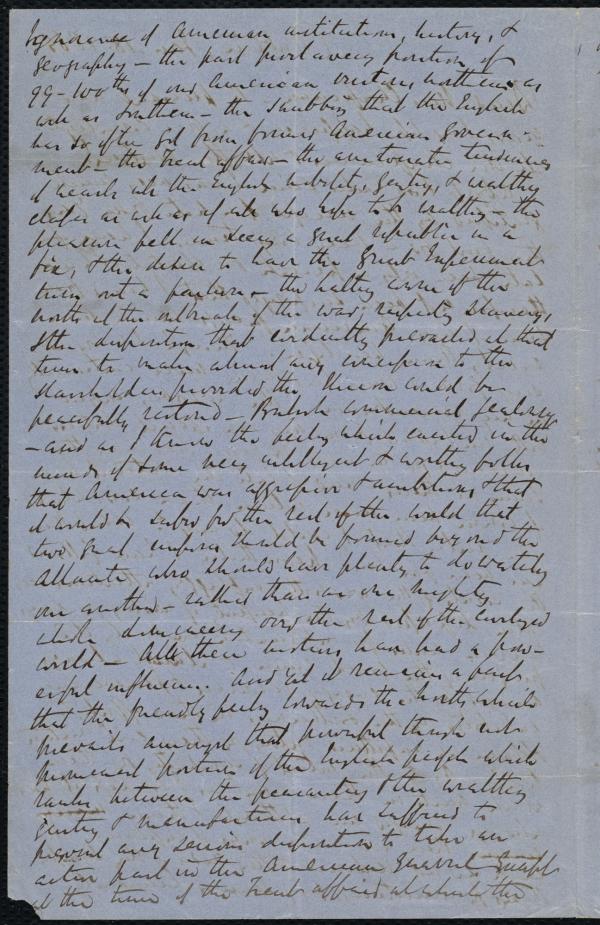 Ignorance of American institutions, history, &
geography — the past proslavery position of
99-100ths of our American visitors northern as
well as Southern — the snubbing that the English
has so often got from former American Govern-
ment — the Trent affair — the aristocratic tendencies
of nearly all the English nobility, gentry, & wealthy
classes as well as of all who hope to be wealthy — the
pleasure felt in seeing a great republic in a
fix, & the desire to have the Great Experiment
turn out a failure — the halting course of the
north at the outbreak of the war, respecting Slavery,
& the disposition that evidently prevailed at that
time to make almost any concession to the
slaveholders provided the Union could be
peacefully restored — British commercial jealousy
— and as I know the feeling which existed in the
minds of some very intelligent & worthy folks
that America was aggressive & ambitious, & that
it would be safer for the rest of the world that
two great empires should be formed beyond the
Atlantic who should have plenty to do watching
one another — rather than as one mighty
whole domineering over the rest of the civilized
world — All these causes have had a pow-
erful influence. And yet it remains a fact
that the friendly feeling towards the north, which
prevails amongst that powerful though not
prominent portion of the English people which
ranks between the peasantry & the wealthy
gentry & manufacturers has sufficed to
prevent any serious disposition to take an
active part in the American quarrel except
at the time of the Trent affair, at which the